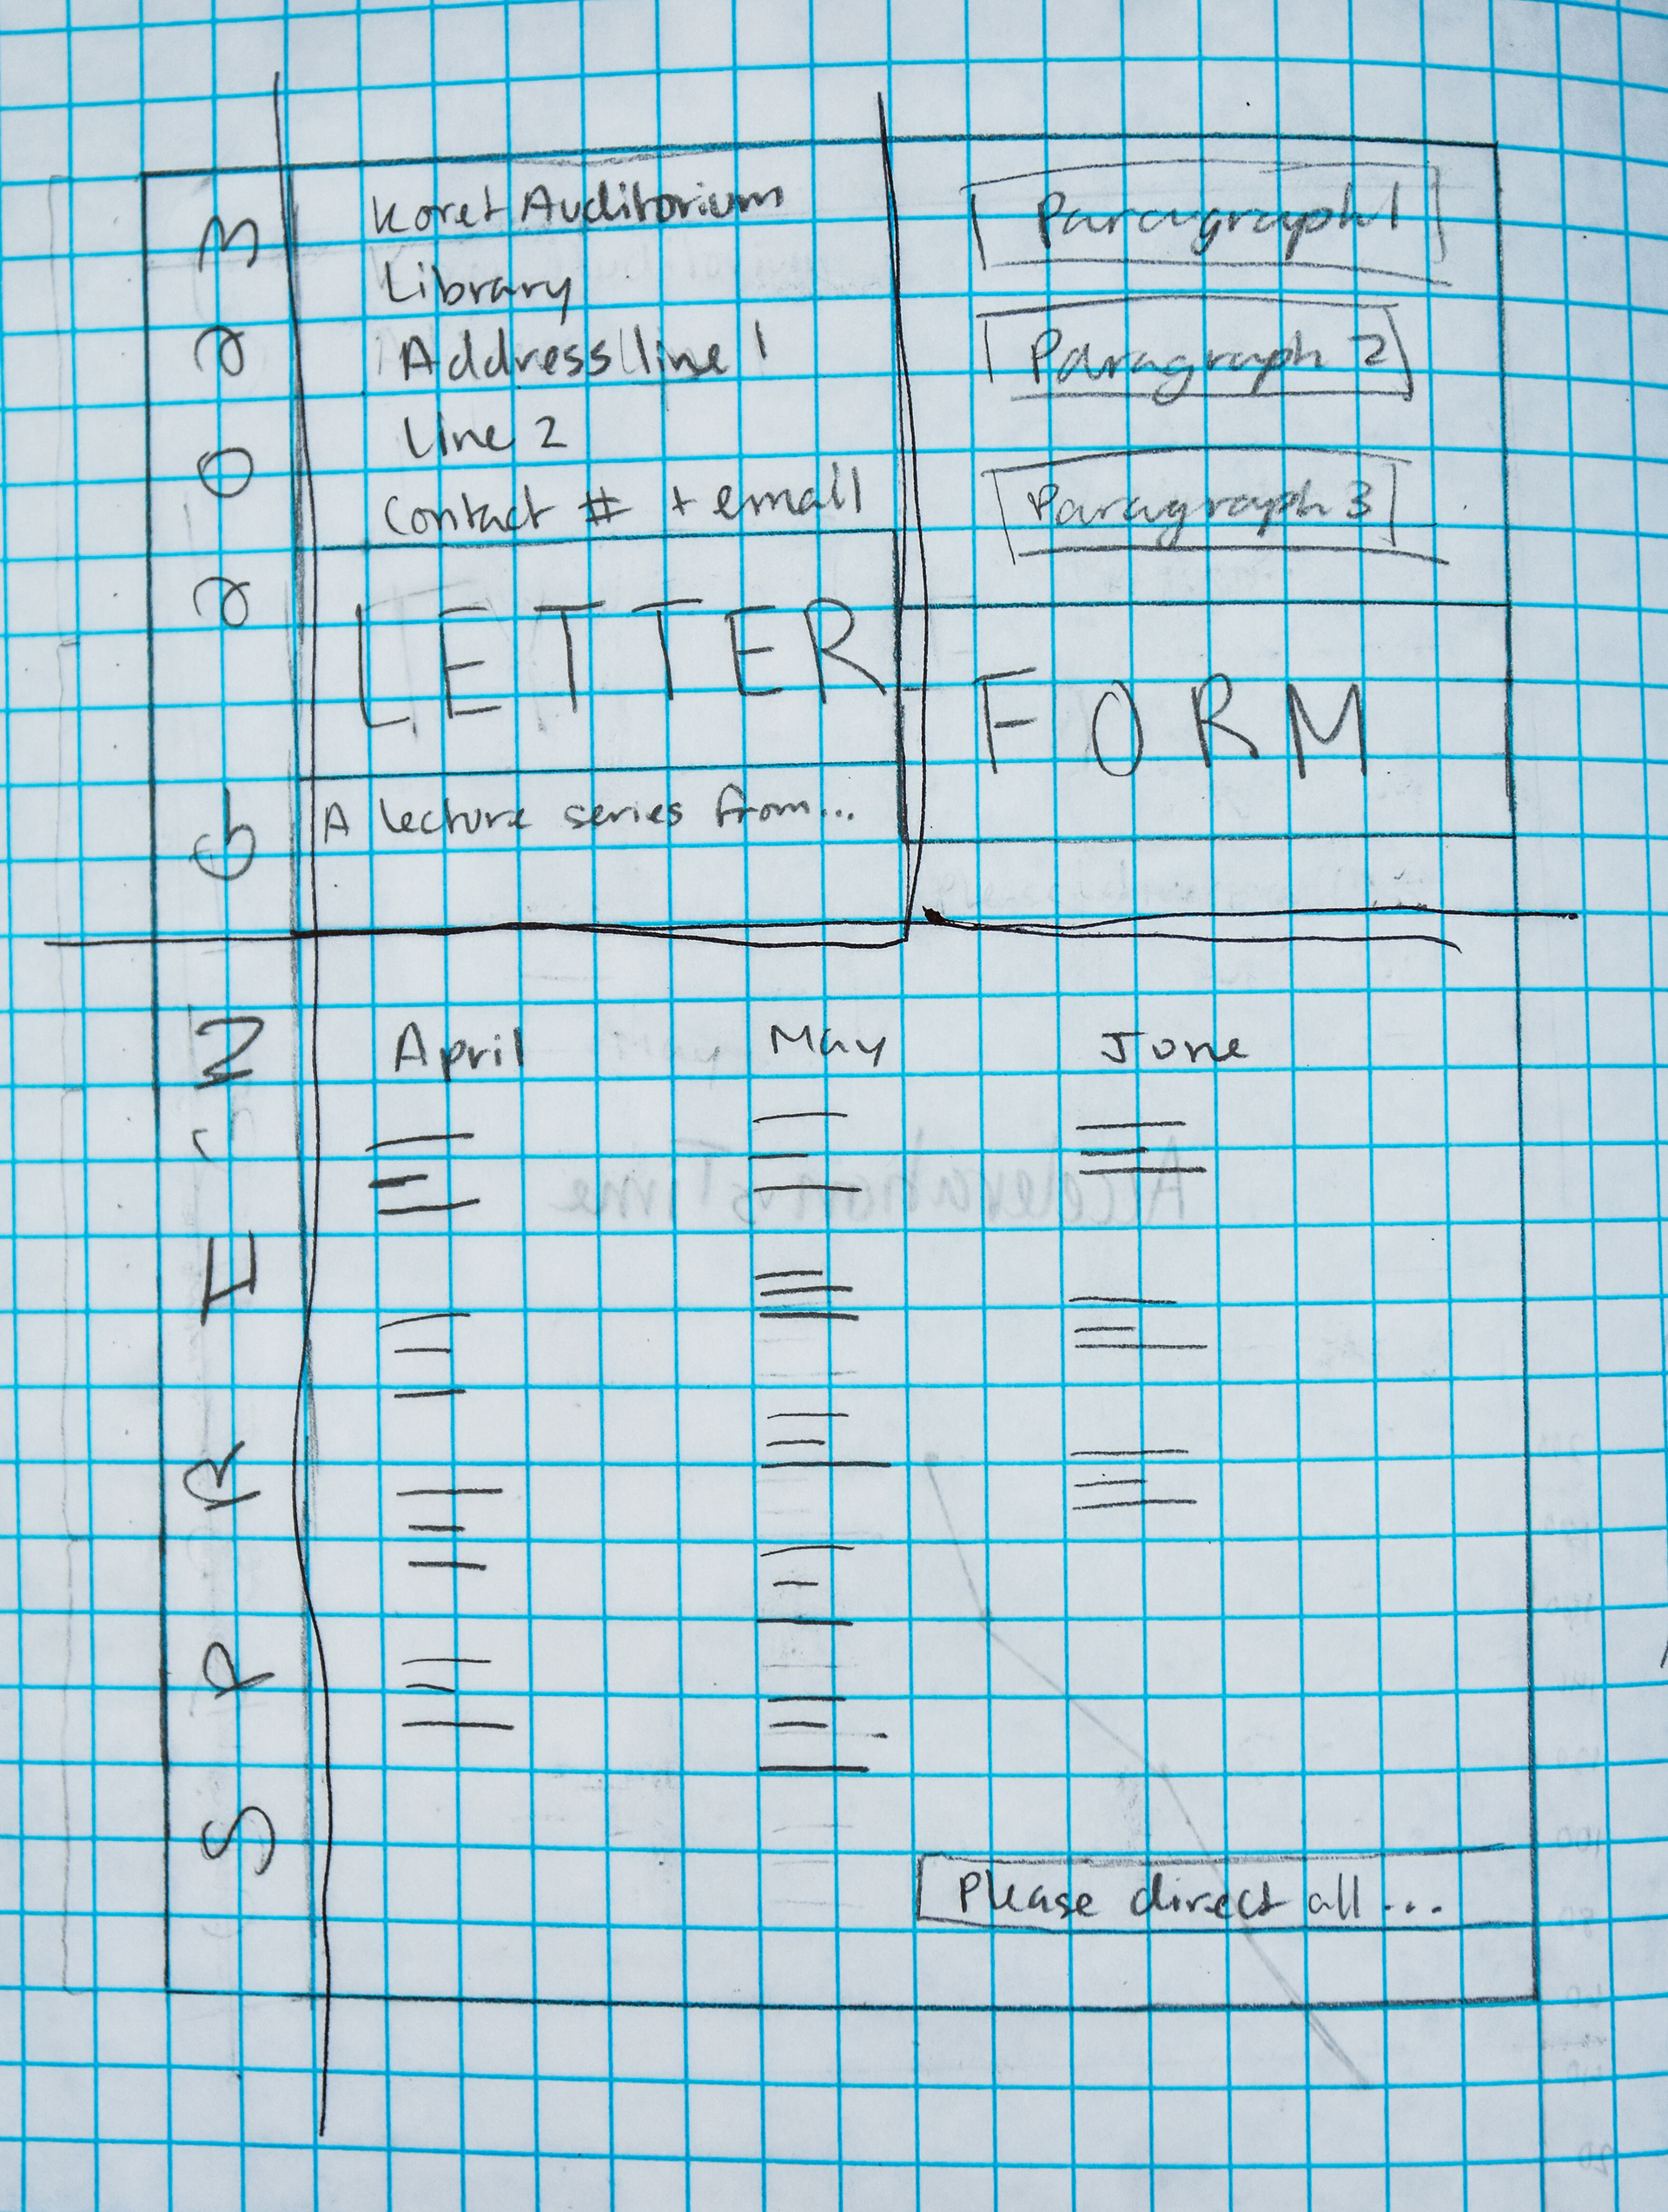 SPRING 2023
Koret Auditorium
Library
Address line 1
Line 2
Contact # + email
LETTER
A lecture series from...
Paragraph 1
Paragraph 2
Paragraph 3
FORM
April May June
Acceleration vs Time
Please direct all...